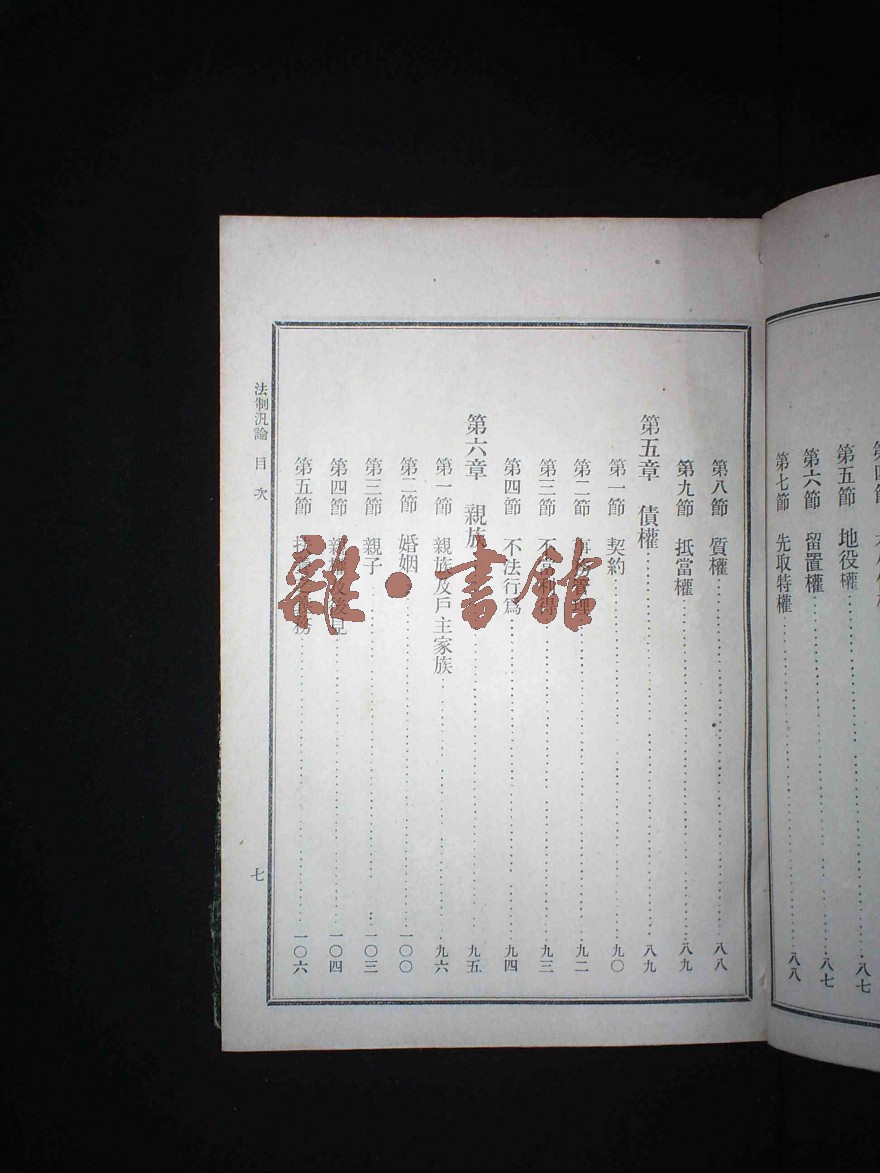 第四節
第五節 地役權……八七
第六節 留置權……八七
第七節 先取特權……八八
第八節 質權……八八
第九節 抵當權……八九
第五章 債權……八九
第一節 契約……九〇
第二節 事務管理……九二
第三節 不當利得……九三
第四節 不法行爲……九四
第六章 親族……九五
第一節 親族及戶主家族……九六
第二節 婚姻……一〇〇
第三節 親子……一〇三
第四節 親權及後見……一〇四
第五節 扶養之義務……一〇六
法制汎論 目次
七
雜·書館